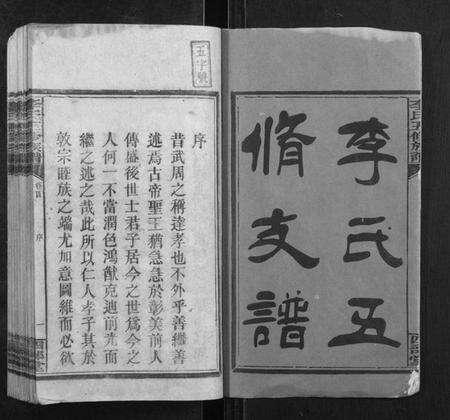 李氏五
脩支譜
五字號
序
昔武周之稱達孝也不外乎善繼善
述焉古帝聖王猶急急於彰美前人
傳盛後世士君子居今之世為今之
人何一不當潤色鴻猷克迪前光而
繼之述之哉此所以仁人孝子其於
敦宗睦族之端尤加意圖維而必欲
卷首
序
一